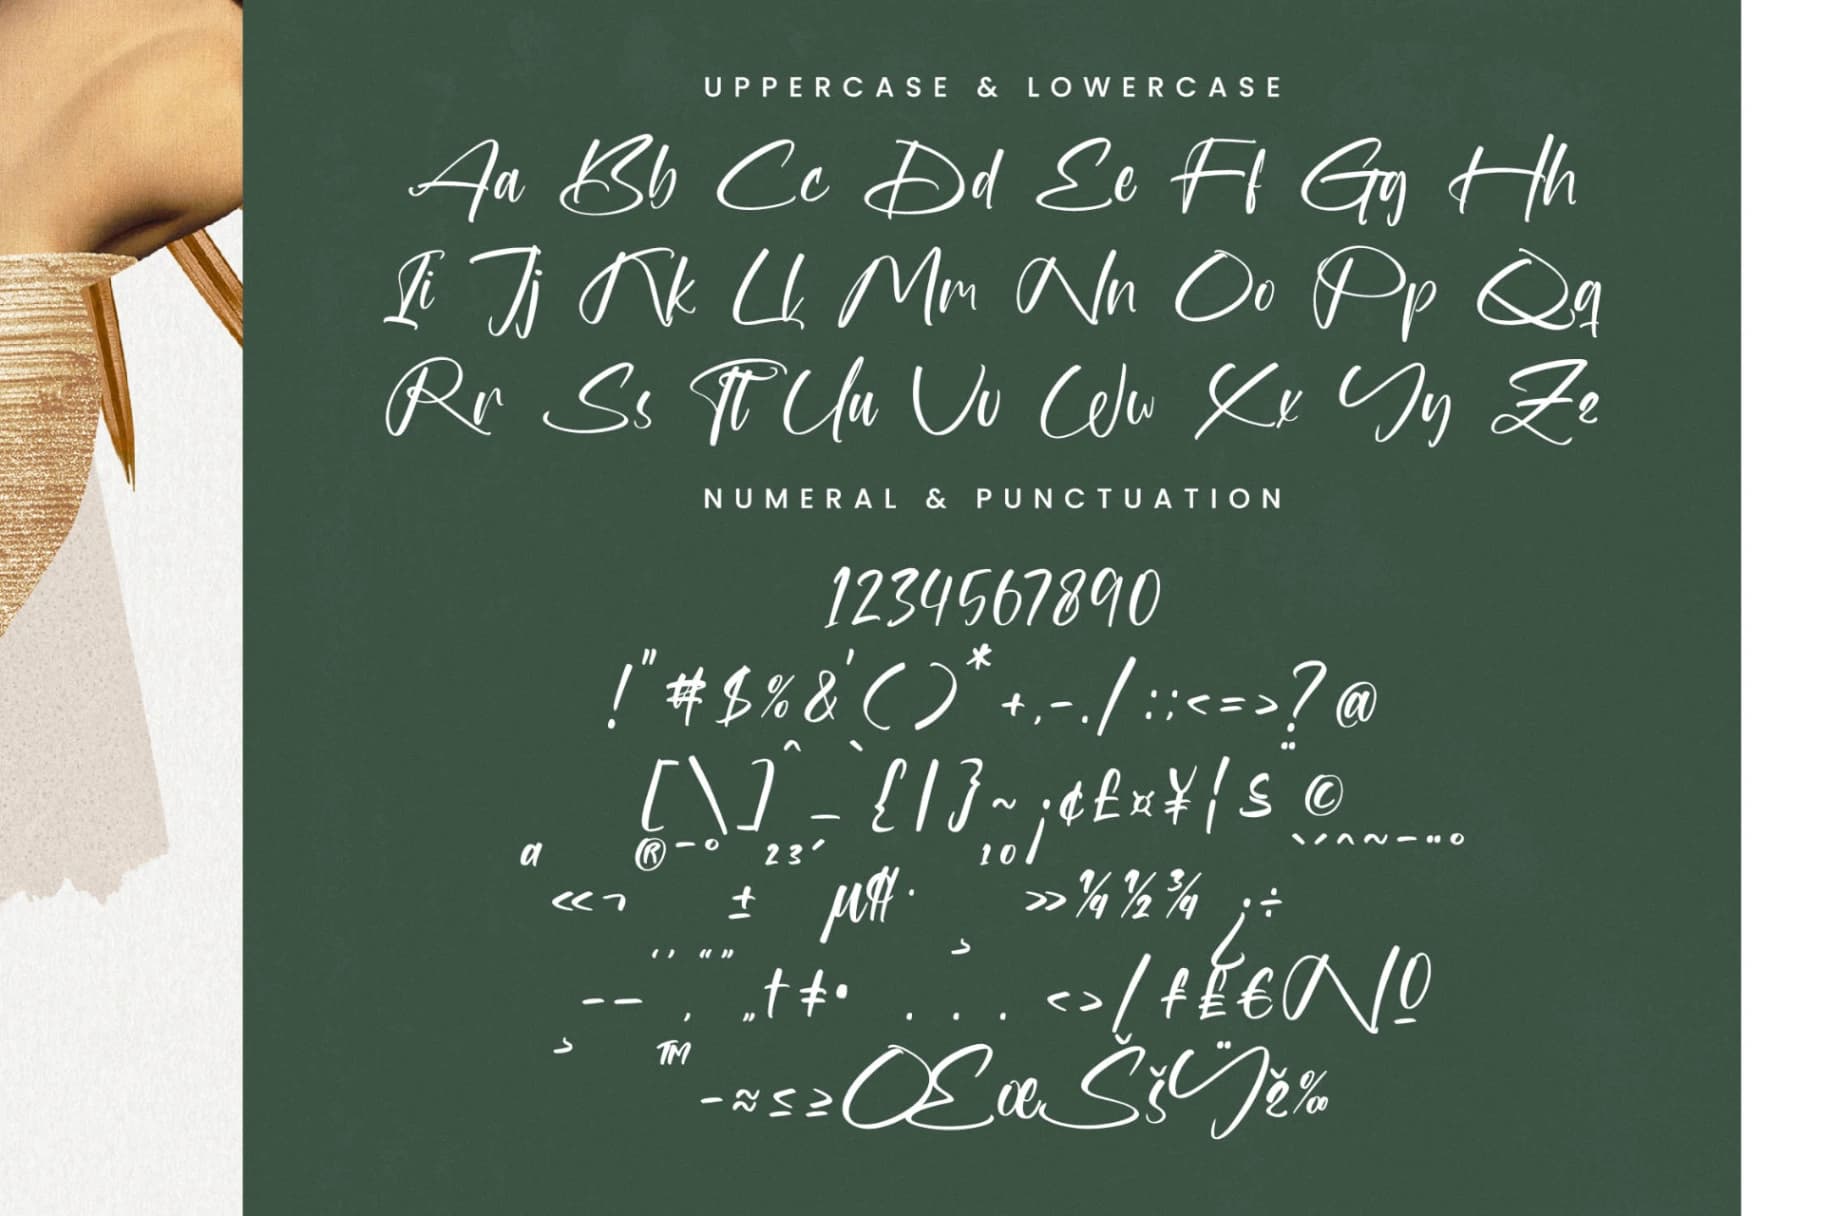 UPPERCASE & LOWERCASE
Aa Bb Cc Dd Ee Ff Gg Hh
Ii Jj Kk Ll Mm Nn Oo Pp Qq
Rr Ss Tt Uu Vv Ww Xx Yy Zz
NUMERAL & PUNCTUATION
1234567890
!"#$%&'()*+,-./:;<=>?@
[\]^_`{|}~¡¢£¤¥¦§¨©
ª«¬®¯°±²³´µ¶·¸¹º»¼½¾¿÷ˋˊˆ˜ˉ¨˚
–—‘’‚“”„†‡•...‹›⁄₣₤€№
™−≈≤≥ŒœŠšŸž‰